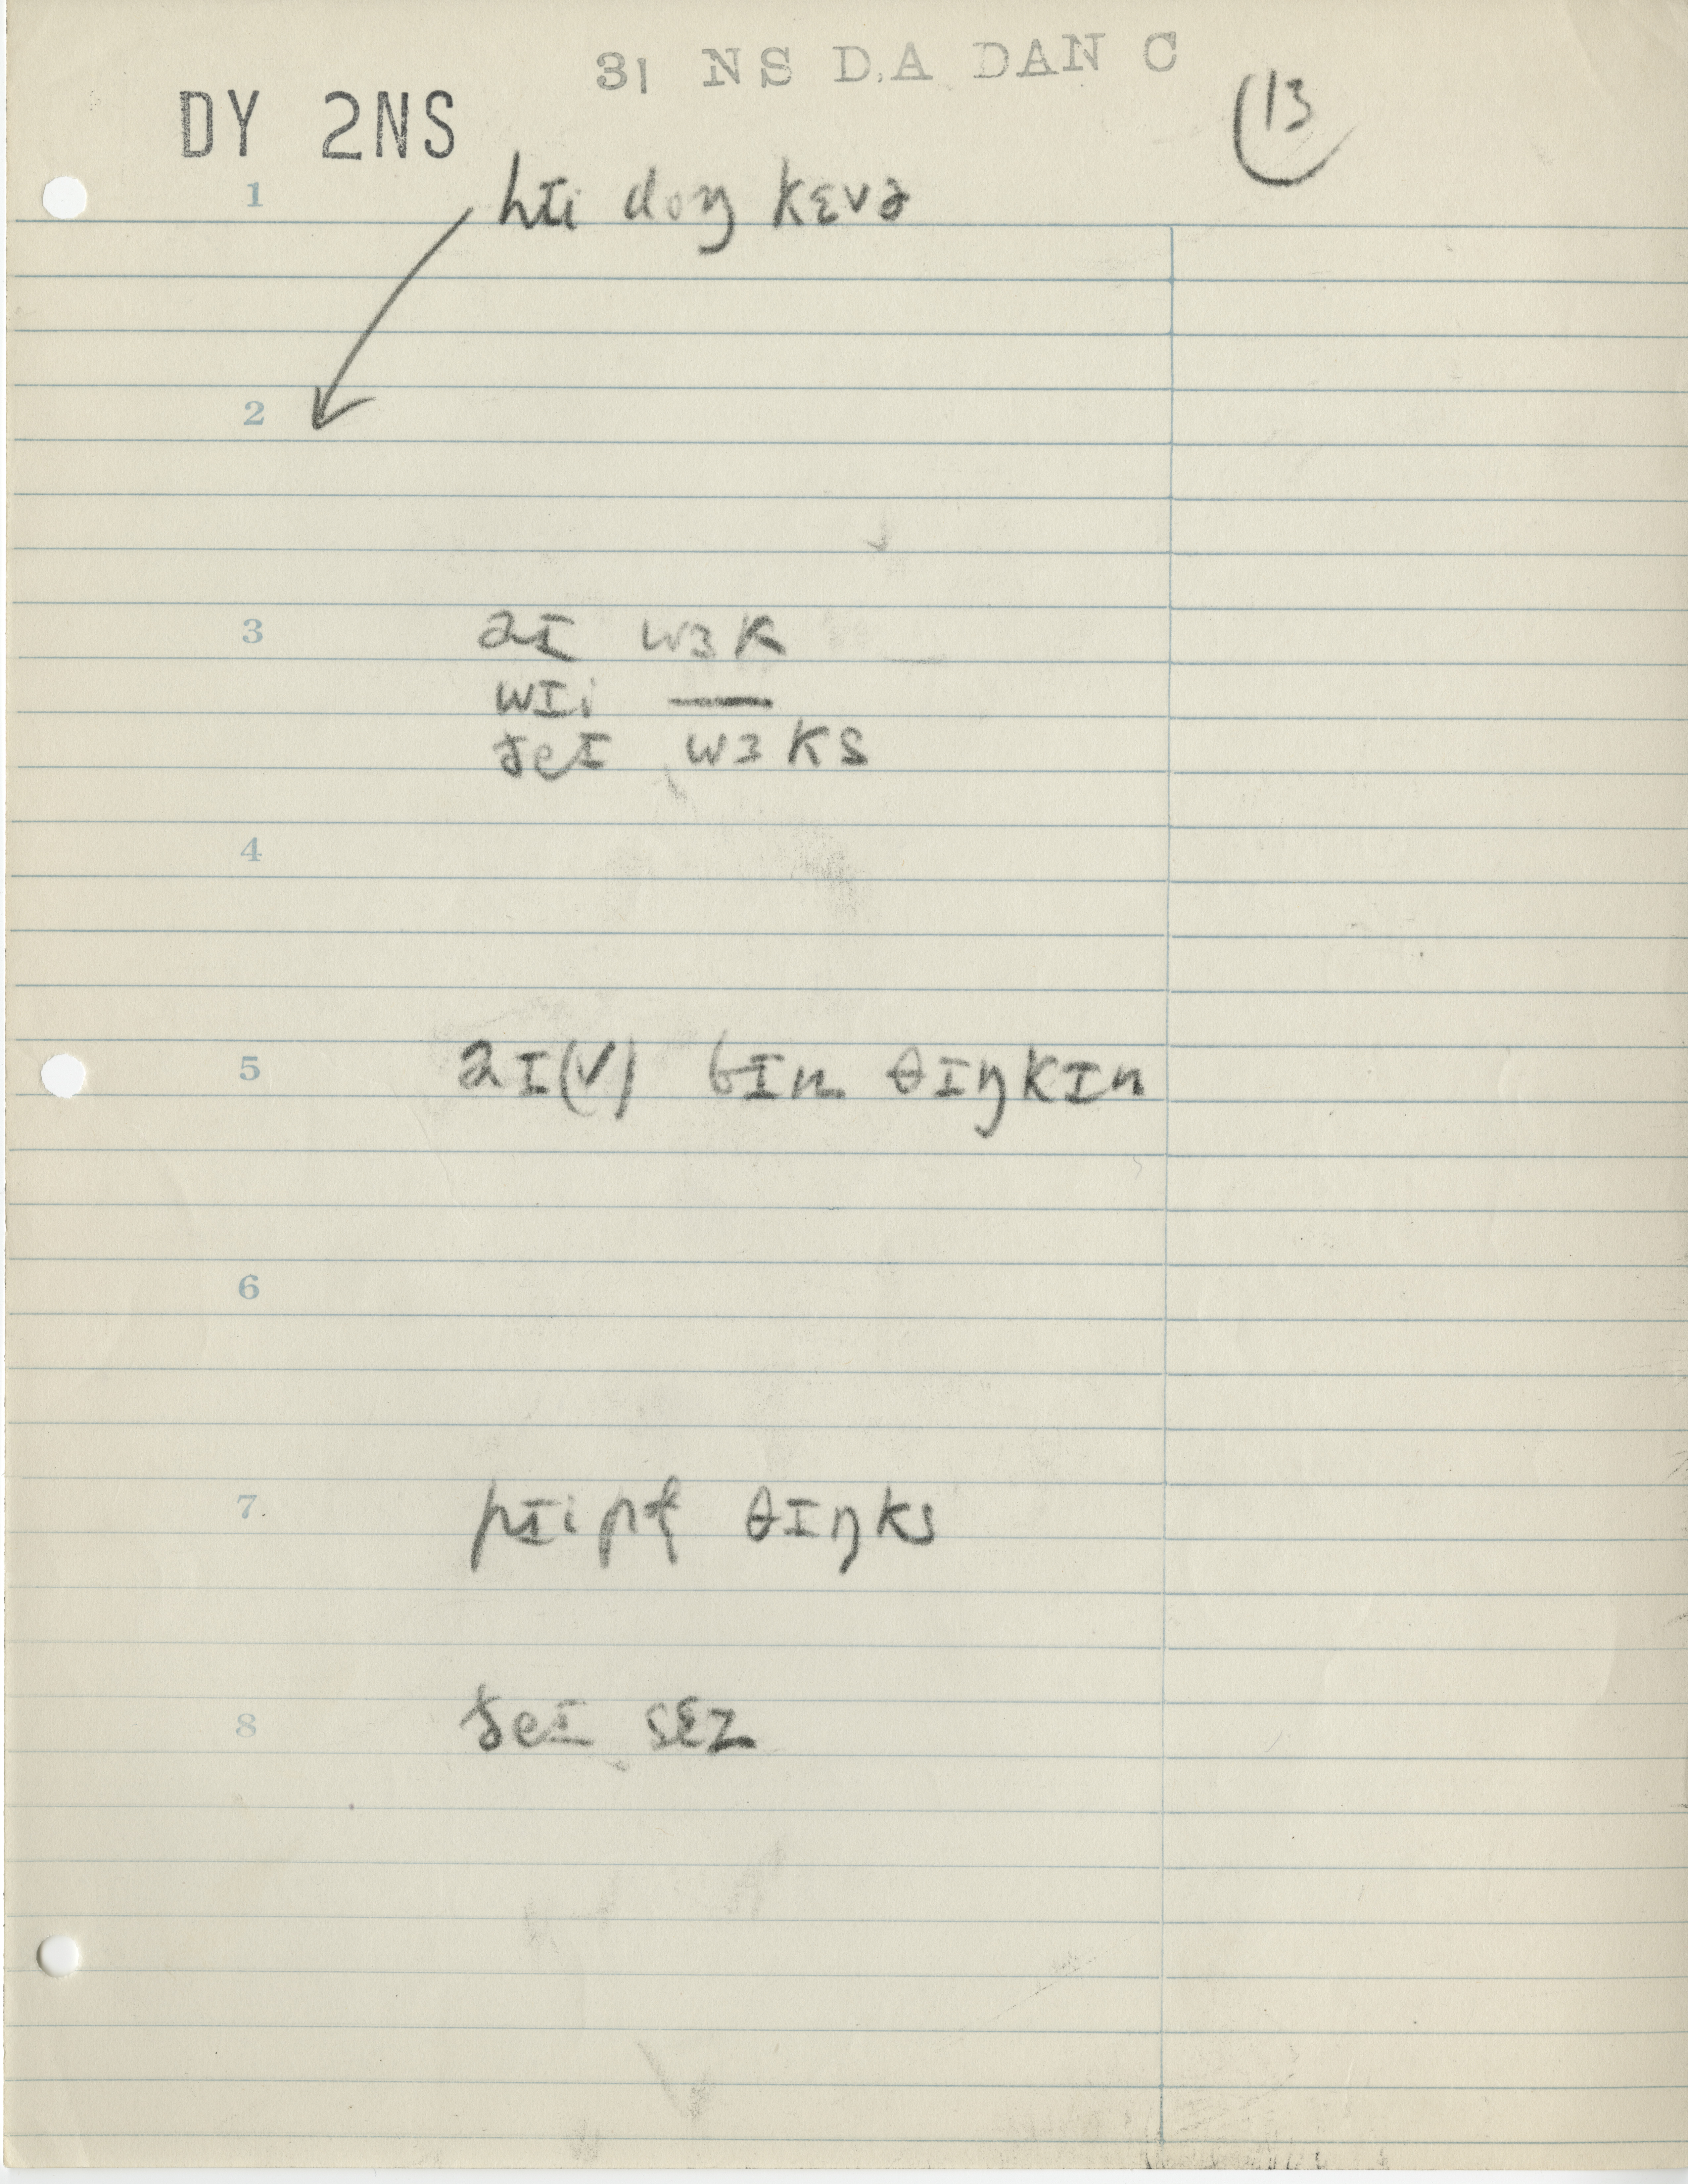 31 NS D.A DAN C
DY 2NS
13
1 hɪi doŋ kɛvə
2
3 aɪ wɜk
wɪi —
ðeɪ wɜks
4
5 aɪ(v) bɪn θɪŋkɪn
6
7 pɪipɫ θɪŋks
8 ðeɪ sɛz